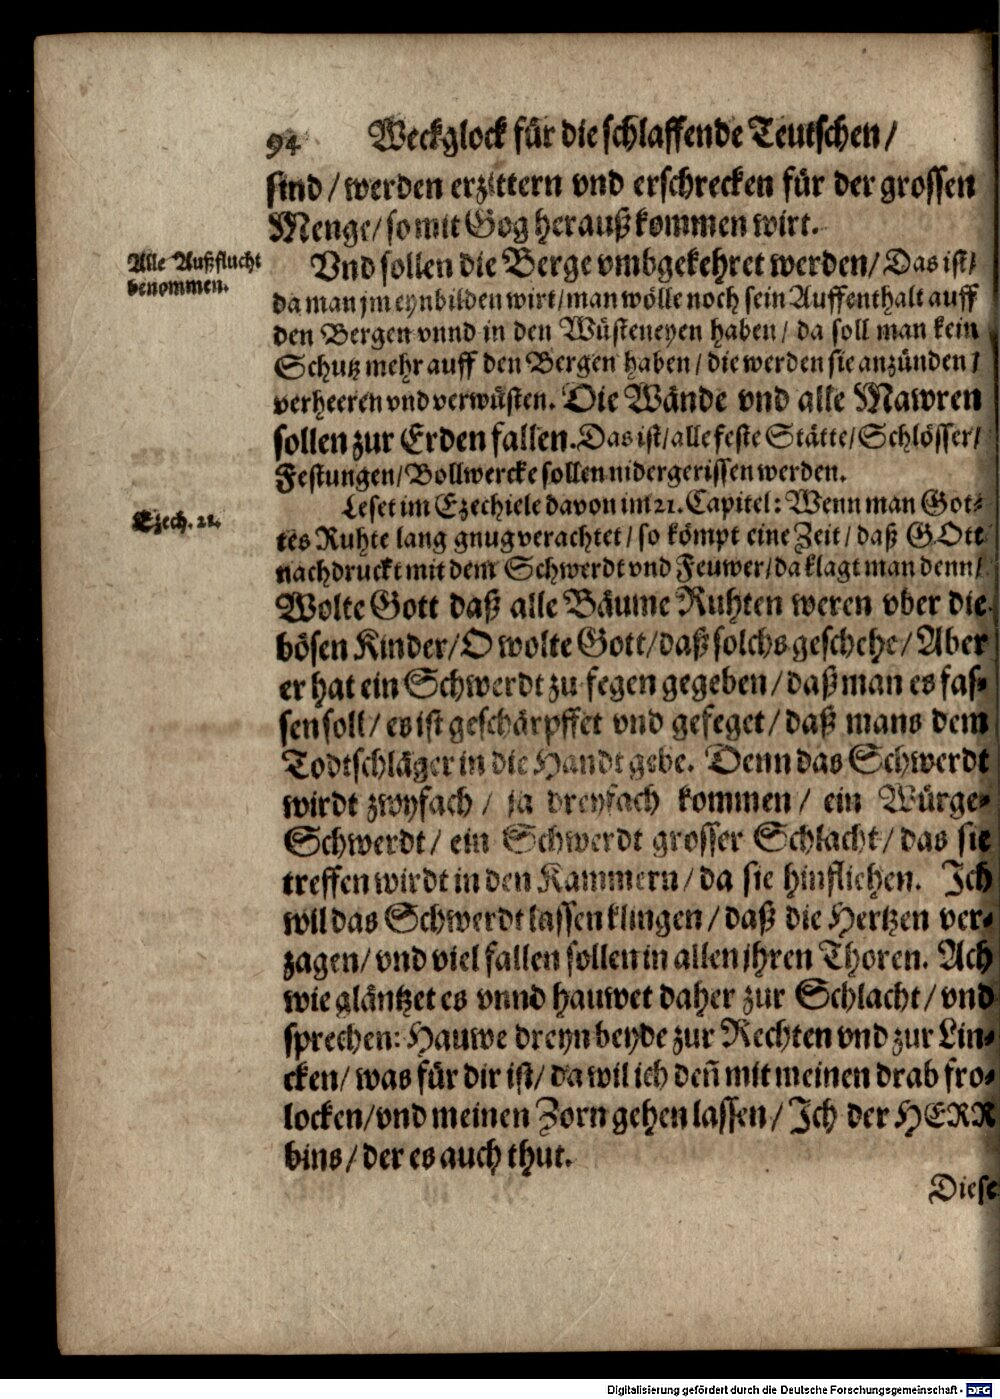 94 Weckglock für die schlaffende Teutschen/
sind/ werden erzittern vnd erschrecken für der grossen
Menge/ so mit Gog herauß kommen wirt.
Alle Außflucht
benommen.
Vnd sollen die Berge vmbgekehret werden/ Das ist/
da man jm eynbilden wirt/ man wölle noch sein Auffenthalt auff
den Bergen vnnd in den Wüsteneyen haben/ da soll man kein
Schutz mehr auff den Bergen haben/ die werden sie anzünden/
verheeren vnd verwüsten. Die Wände vnd alle Mawren
sollen zur Erden fallen. Das ist/ alle feste Stätte/ Schlösser/
Festungen/ Bollwercke sollen nidergerissen werden.
Ezech. 21.
Leset im Ezechiele davon im 21. Capitel: Wenn man Got-
tes Ruhte lang gnug verachtet/ so kömpt eine Zeit/ daß GOtt
nachdruckt mit dem Schwerdt vnd Feuwer/ da klagt man denn/
Wolte Gott daß alle Bäume Ruhten weren vber die
bösen Kinder/ O wolte Gott/ daß solchs geschehe/ Aber
er hat ein Schwerdt zu fegen gegeben/ daß man es fas-
sen soll/ es ist geschärpffet vnd gefeget/ daß mans dem
Todtschläger in die Handt gebe. Denn das Schwerdt
wirdt zwyfach/ ja dreyfach kommen/ ein Würge-
Schwerdt/ ein Schwerdt grosser Schlacht/ das sie
treffen wirdt in den Kammern/ da sie hinfliehen. Ich
wil das Schwerdt lassen klingen/ daß die Hertzen ver-
zagen/ vnd viel fallen sollen in allen jhren Thoren. Ach
wie gläntzet es vnnd hauwet daher zur Schlacht/ vnd
sprechen: Hauwe dreyn beyde zur Rechten vnd zur Lin-
cken/ was für dir ist/ da wil ich deñ mit meinen drab fro-
locken/ vnd meinen Zorn gehen lassen/ Ich der HERR
bins/ der es auch thut.
Diese
Digitalisierung gefördert durch die Deutsche Forschungsgemeinschaft - DFG